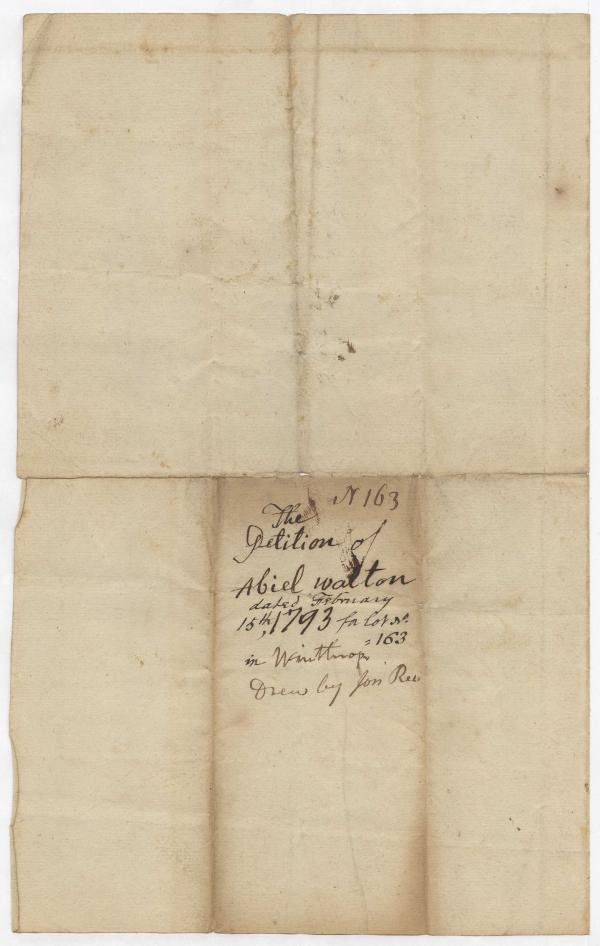 N 163
The
Petition of
Abiel Walton
dated February
15th, 1793 for Lot No.
163
in Winthrop
Drew by Jon